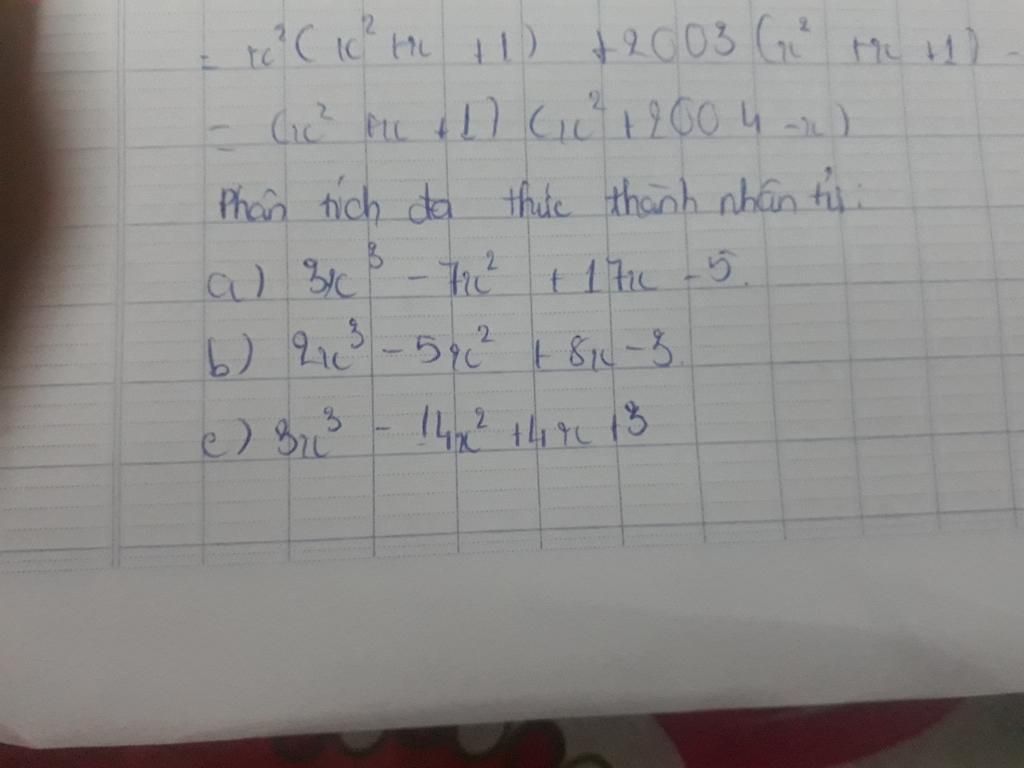 = x²(x² +x +1) +2003(x² +x +1) -
= (x² +x +1) (x² +2004 -x)
Phân tích đa thức thành nhân tử:
a) 3x³ - 7x² + 17x - 5.
b) 2x³ - 5x² + 8x - 3.
c) 3x³ - 14x² +4x +3